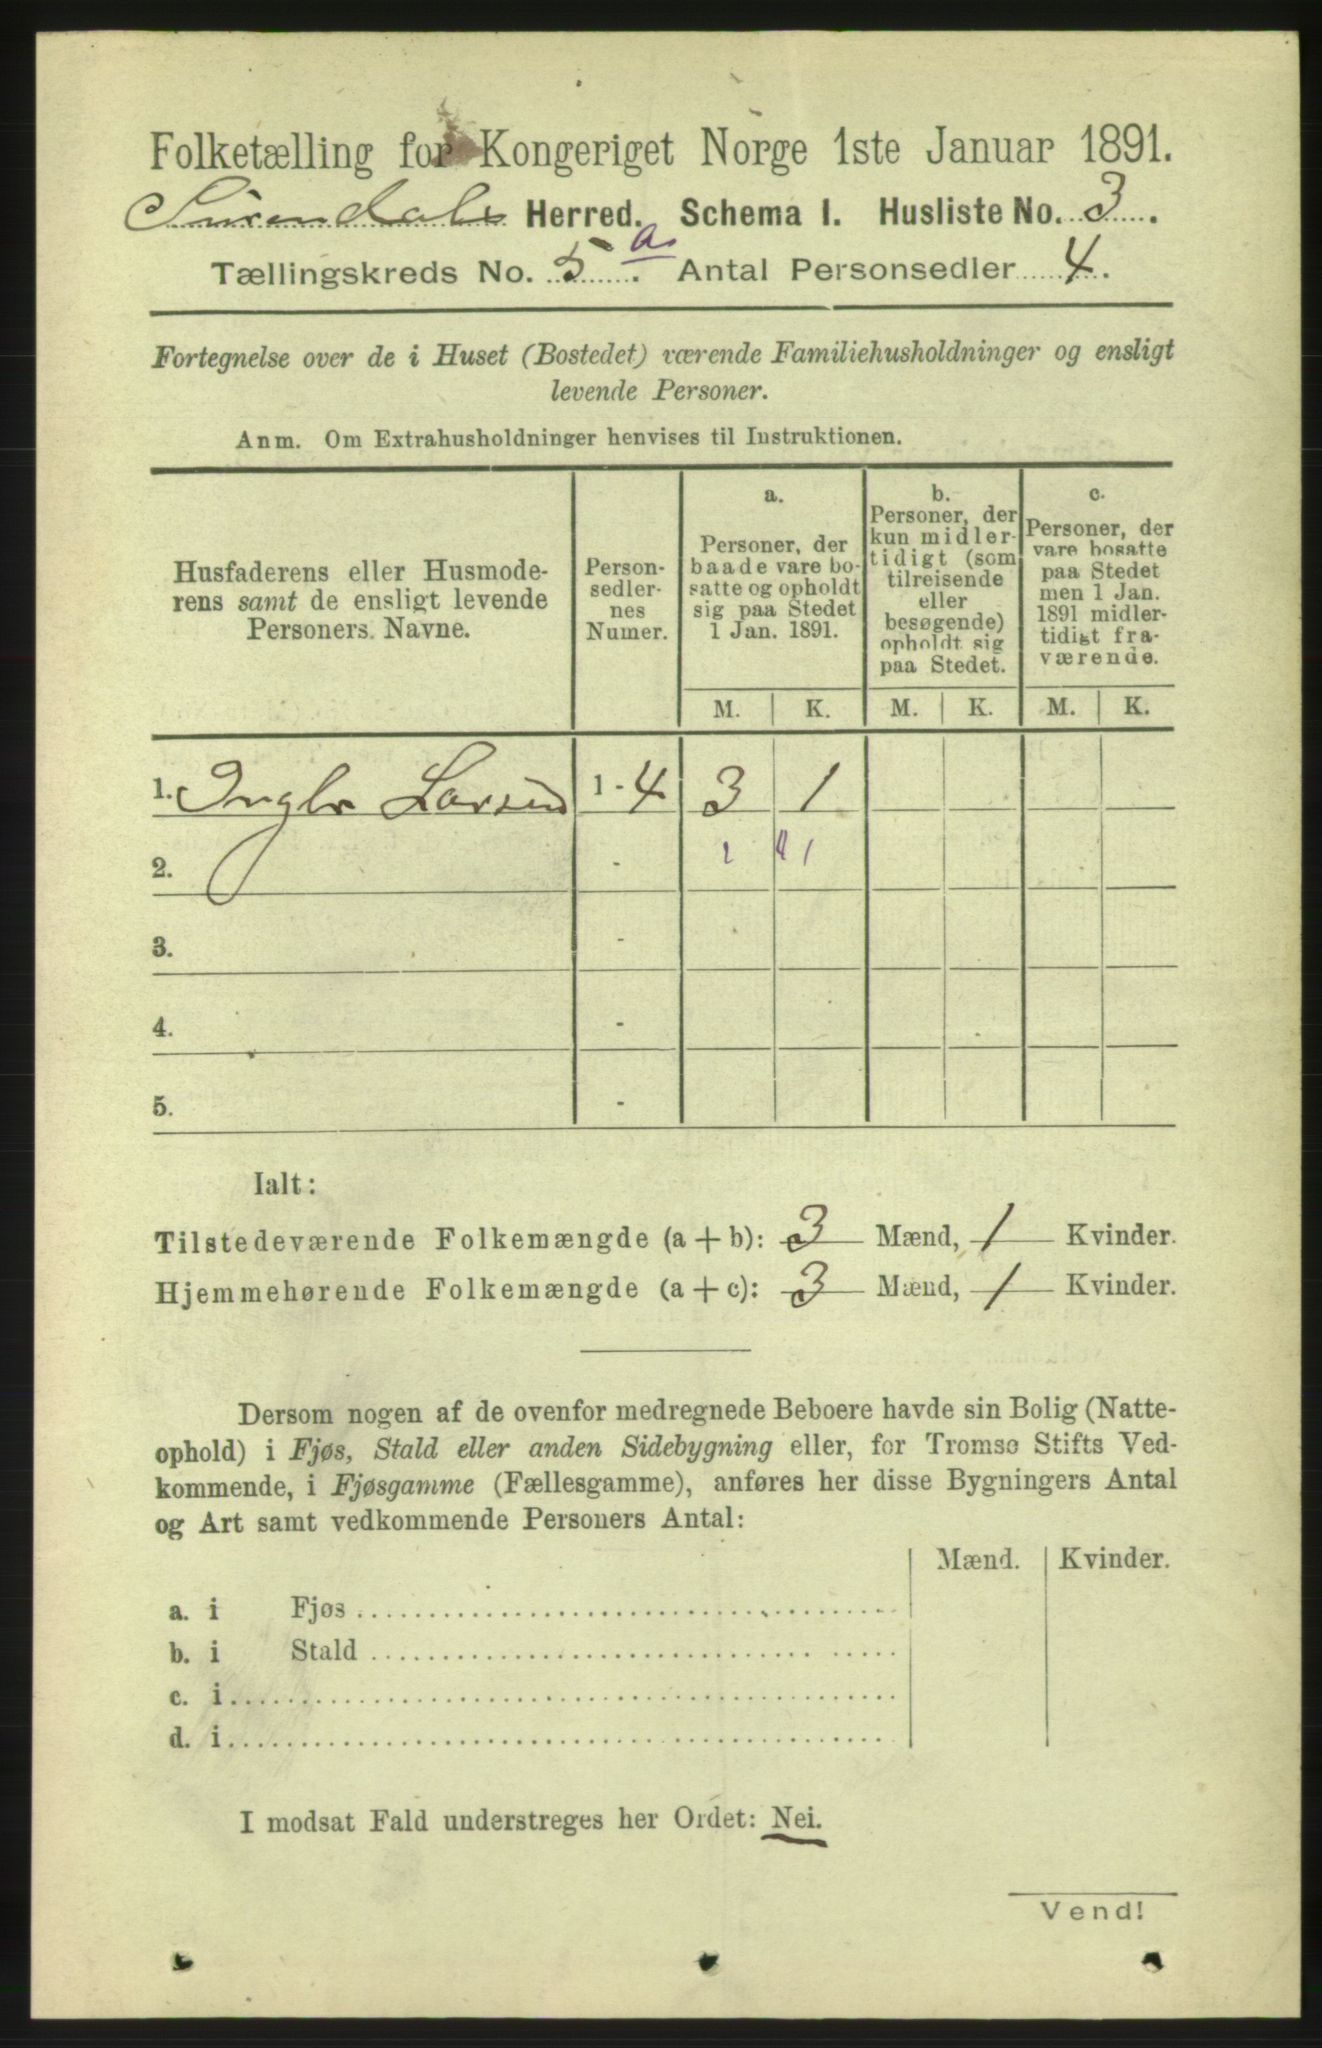 Folketælling for Kongeriget Norge 1ste Januar 1891.
Surendals Herred. Schema I. Husliste No. 3.
Tællingskreds No. 5. a. Antal Personsedler 4.
Fortegnelse over de i Huset (Bostedet) værende Familiehusholdninger og ensligt
levende Personer.
Anm. Om Extrahusholdninger henvises til Instruktionen.
Husfaderens eller Husmode-
rens samt de ensligt levende
Personers Navne.
Person-
sedler-
nes
Numer.
a.
Personer, der
baade vare bo-
satte og opholdt
sig paa Stedet
1 Jan. 1891.
b.
Personer, der
kun midler-
tidigt (som
tilreisende
eller
besøgende)
opholdt sig
paa Stedet.
c.
Personer, der
vare bosatte
paa Stedet
men 1 Jan.
1891 midler-
tidigt fra-
værende.
M. K. M. K. M. K.
1. Larsen 1 - 4 3 1
2. - 1 1
3. -
4. -
5. -
Ialt:
Tilstedeværende Folkemængde (a + b): 3 Mænd, 1 Kvinder.
Hjemmehørende Folkemængde (a + c): 3 Mænd, 1 Kvinder.
Dersom nogen af de ovenfor medregnede Beboere havde sin Bolig (Natte-
ophold) i Fjøs, Stald eller anden Sidebygning eller, for Tromsø Stifts Ved-
kommende, i Fjøsgamme (Fællesgamme), anføres her disse Bygningers Antal
og Art samt vedkommende Personers Antal:
Mænd. Kvinder.
a. i Fjøs
b. i Stald
c. i
d. i
I modsat Fald understreges her Ordet: Nei.
Vend!